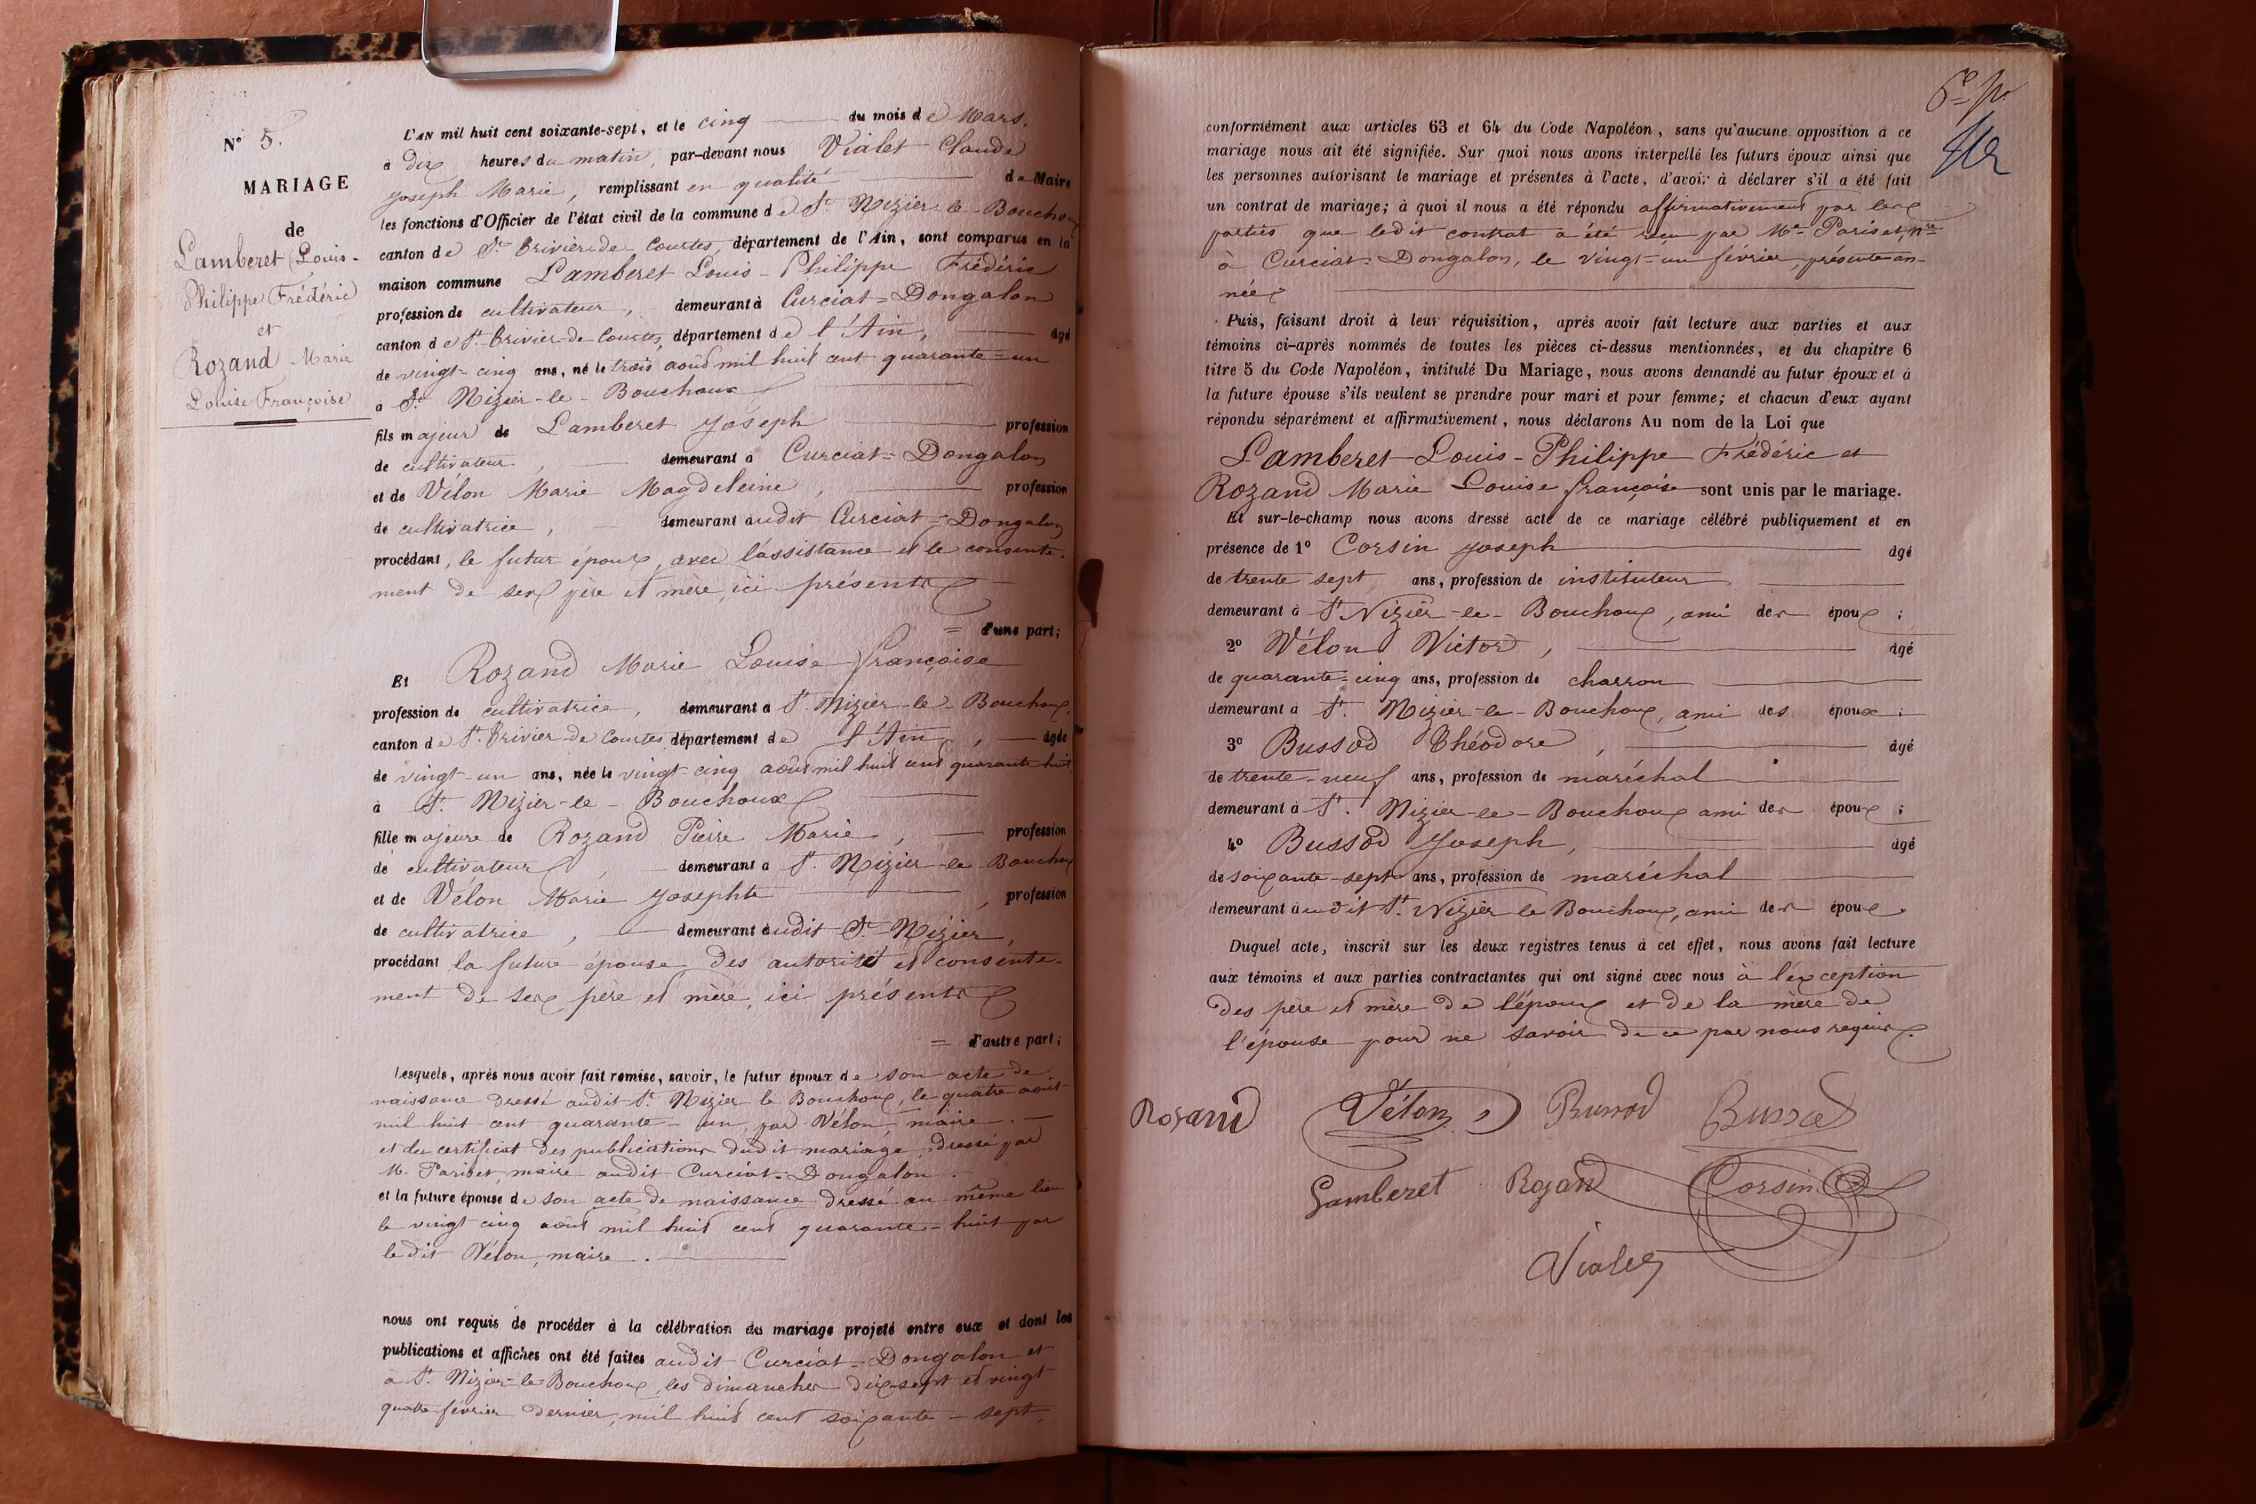 N° 5.
MARIAGE
de
Lamberet Louis-
Philippe Frédéric
et
Rozand Marie
Louise Françoise
L'AN mil huit cent soixante-sept, et le cinq du mois de Mars,
à dix heures du matin, par-devant nous Vialet Claude
Joseph Marie, remplissant en qualité de Maire
les fonctions d'Officier de l'état civil de la commune de St Nizier-le-Bouchoux
canton de St Trivier-de-Courtes, département de l'Ain, sont comparus en la
maison commune Lamberet Louis-Philippe Frédéric
profession de cultivateur, demeurant à Curciat=Dongalon
canton de St Trivier-de-Courtes, département de l'Ain, âgé
de vingt-cinq ans, né le trois août mil huit cent quarante=un
à St Nizier-le-Bouchoux
fils majeur de Lamberet Joseph profession
de cultivateur, demeurant à Curciat=Dongalon
et de Vélon Marie Magdeleine, profession
de cultivatrice, demeurant audit Curciat=Dongalon
procédant, le futur époux, avec l'assistance et le consente-
ment de ses père et mère, ici présents
= d'une part;
Et Rozand Marie Louise françoise
profession de cultivatrice, demeurant à St Nizier-le-Bouchoux,
canton de St Trivier-de-Courtes, département de l'Ain, âgée
de vingt-un ans, née le vingt-cinq août mil huit cent quarante huit
à St. Nizier-le-Bouchoux
fille majeure de Rozand Pierre Marie, profession
de cultivateur, demeurant à St. Nizier-le-Bouchoux
et de Vélon Marie Josephte, profession
de cultivatrice, demeurant audit St Nizier,
procédant la future épouse des autorité et consente-
ment de ses père et mère, ici présents
= d'autre part;
Lesquels, après nous avoir fait remise, savoir, le futur époux de son acte de
naissance dressé audit St Nizier le Bouchoux, le quatre août
mil huit cent quarante-un, par Vélon, maire.
et du certificat des publications dudit mariage, dressé par
M. Pariset, maire audit Curciat=Dongalon.
et la future épouse de son acte de naissance dressé au même lieu
le vingt cinq août mil huit cent quarante=huit par
ledit Vélon, maire.
nous ont requis de procéder à la célébration du mariage projeté entre eux et dont les
publications et affiches ont été faites audit Curciat=Dongalon et
à St. Nizier-le-Bouchoux, les dimanches dix-sept et vingt
quatre février dernier, mil huit cent soixante-sept,
conformément aux articles 63 et 64 du Code Napoléon, sans qu'aucune opposition à ce
mariage nous ait été signifiée. Sur quoi nous avons interpellé les futurs époux ainsi que
les personnes autorisant le mariage et présentes à l'acte, d'avoir à déclarer s'il a été fait
un contrat de mariage; à quoi il nous a été répondu affirmativement par les
parties que ledit contrat a été reçu par Me Pariset, nre
à Curciat=Dongalon, le vingt=un février, présente an-
née
Puis, faisant droit à leur réquisition, après avoir fait lecture aux parties et aux
témoins ci-après nommés de toutes les pièces ci-dessus mentionnées, et du chapitre 6
titre 5 du Code Napoléon, intitulé Du Mariage, nous avons demandé au futur époux et à
la future épouse s'ils veulent se prendre pour mari et pour femme; et chacun d'eux ayant
répondu séparément et affirmativement, nous déclarons Au nom de la Loi que
Lamberet Louis-Philippe Frédéric et
Rozand Marie Louise françoise sont unis par le mariage.
Et sur-le-champ nous avons dressé acte de ce mariage célébré publiquement et en
présence de 1° Corsin Joseph âgé
de trente sept ans, profession de instituteur
demeurant à St Nizier-le-Bouchoux, ami des époux;
2° Vélon Victor, âgé
de quarante=cinq ans, profession de charron
demeurant à St. Nizier-le-Bouchoux, ami des époux;
3° Bussod Théodore, âgé
de trente-neuf ans, profession de maréchal
demeurant à St. Nizier-le-Bouchoux ami des époux;
4° Bussod Joseph, âgé
de soixante-sept ans, profession de maréchal
demeurant audit St. Nizier le Bouchoux, ami des époux.
Duquel acte, inscrit sur les deux registres tenus à cet effet, nous avons fait lecture
aux témoins et aux parties contractantes qui ont signé avec nous à l'exception
des père et mère de l'époux et de la mère de
l'épouse pour ne savoir de ce par nous requis.
Rozand Vélon Bussod Bussod
Lamberet Rozand Corsin
Vialet